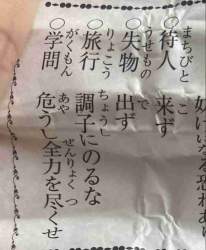 恐れあ
まちびと　こ
○待人　来ず
うせもの　で
○失物　出ず
りょこう　ちょうし
○旅行　調子にのるな
がくもん　あや　ぜんりょく　つ
○学問　危うし全力を尽くせ